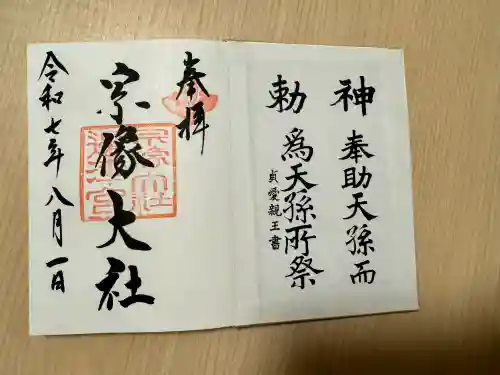 神
勅
奉助天孫而
為天孫所祭
貞愛親王書
奉拝
宗像大社
令和七年八月一日